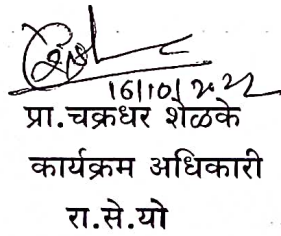 16/10/2022
प्रा.चक्रधर शेळके
कार्यक्रम अधिकारी
रा.से.यो